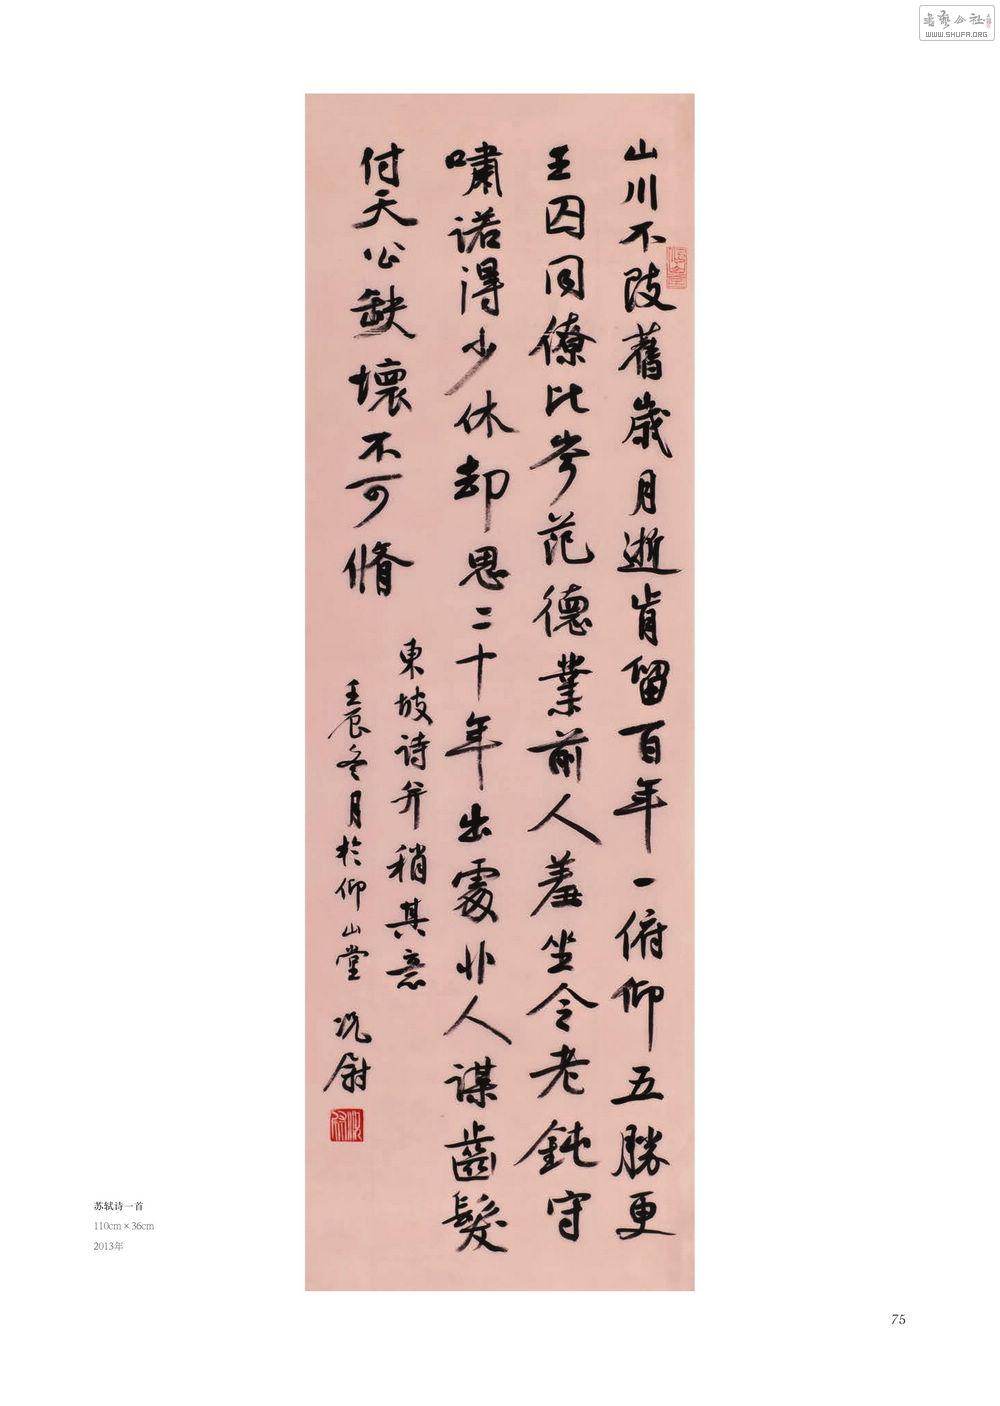 山川不改舊歲月逝肯留百年一俯仰五勝更
王囚同僚比岑范德業前人羞坐令老鈍守
嘯诺得少休却思二十年出處非人谋齒髮
付天公缺壞不可脩
東坡诗并稍其意
壬辰冬月於仰山堂 况尉
苏轼诗一首
110cm×36cm
2013年
75
书艺公社
WWW.SHUFA.ORG